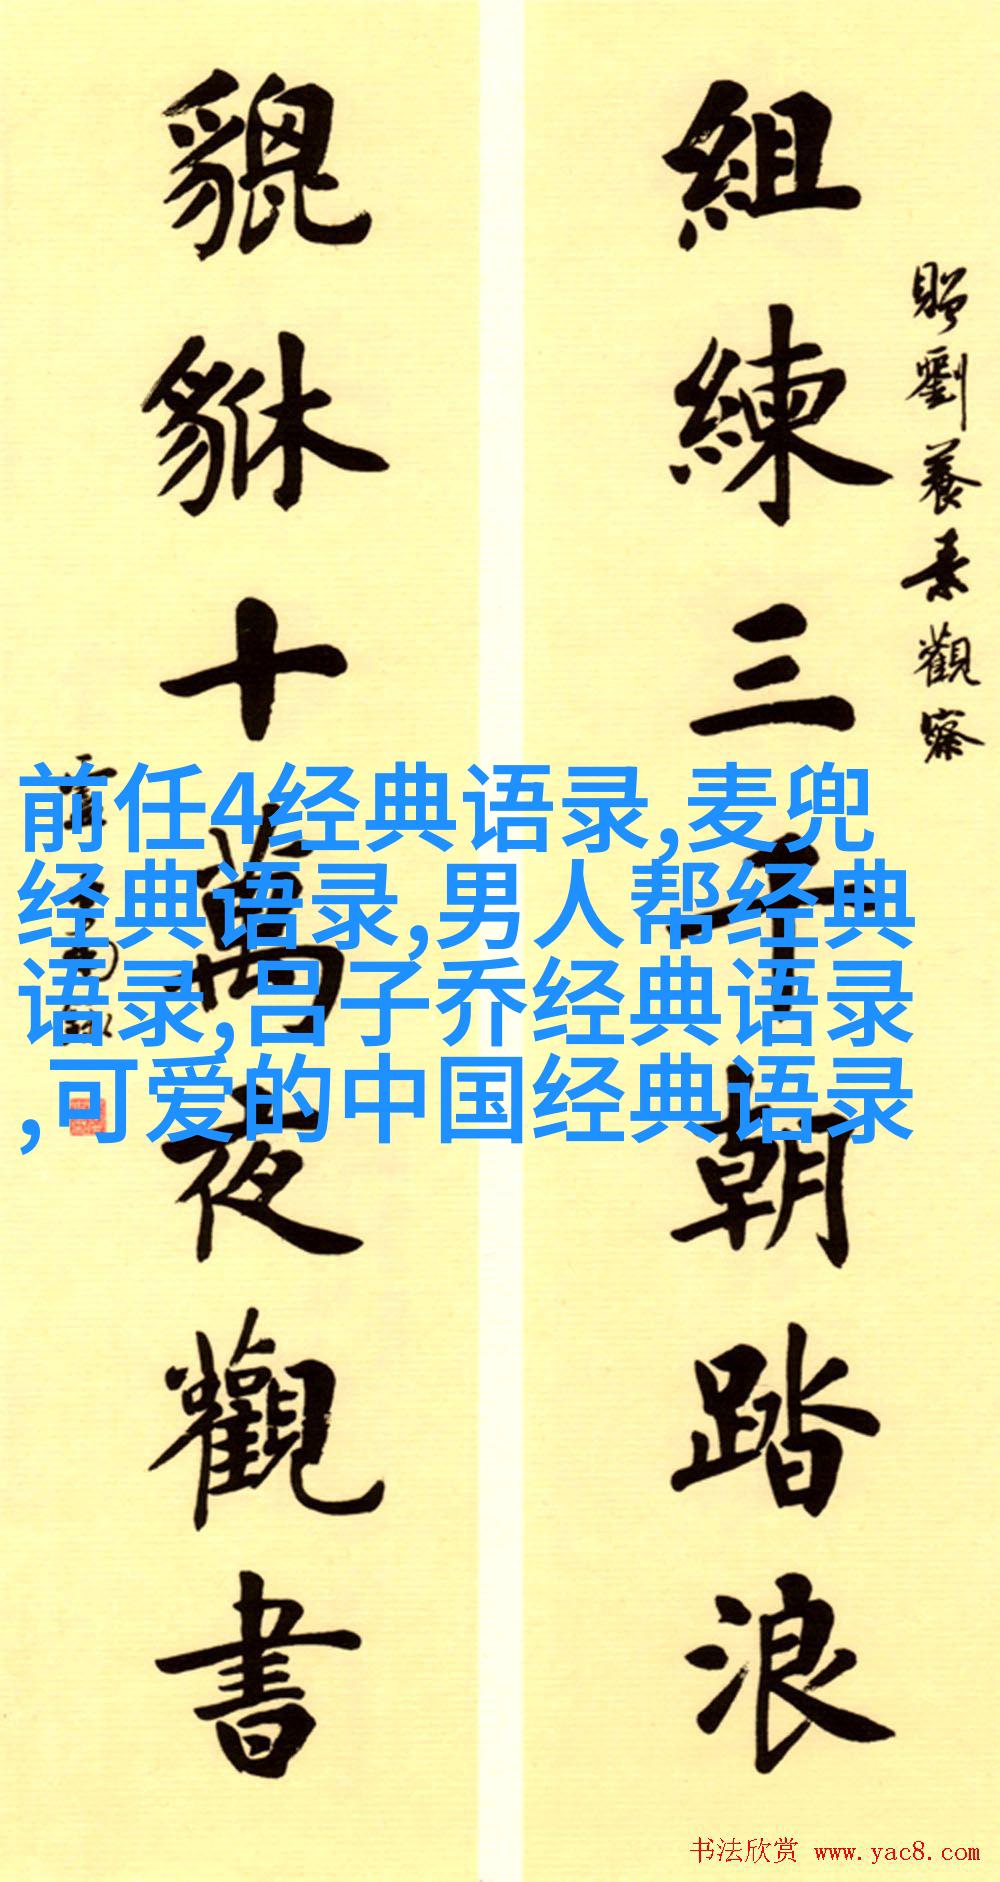 贈劉養素觀察
組練三千朝踏浪
貔貅十萬夜觀書
前任4经典语录,麦兜
经典语录,男人帮经典
语录,吕子乔经典语录
,可爱的中国经典语录
书法欣赏 www.yac8.com